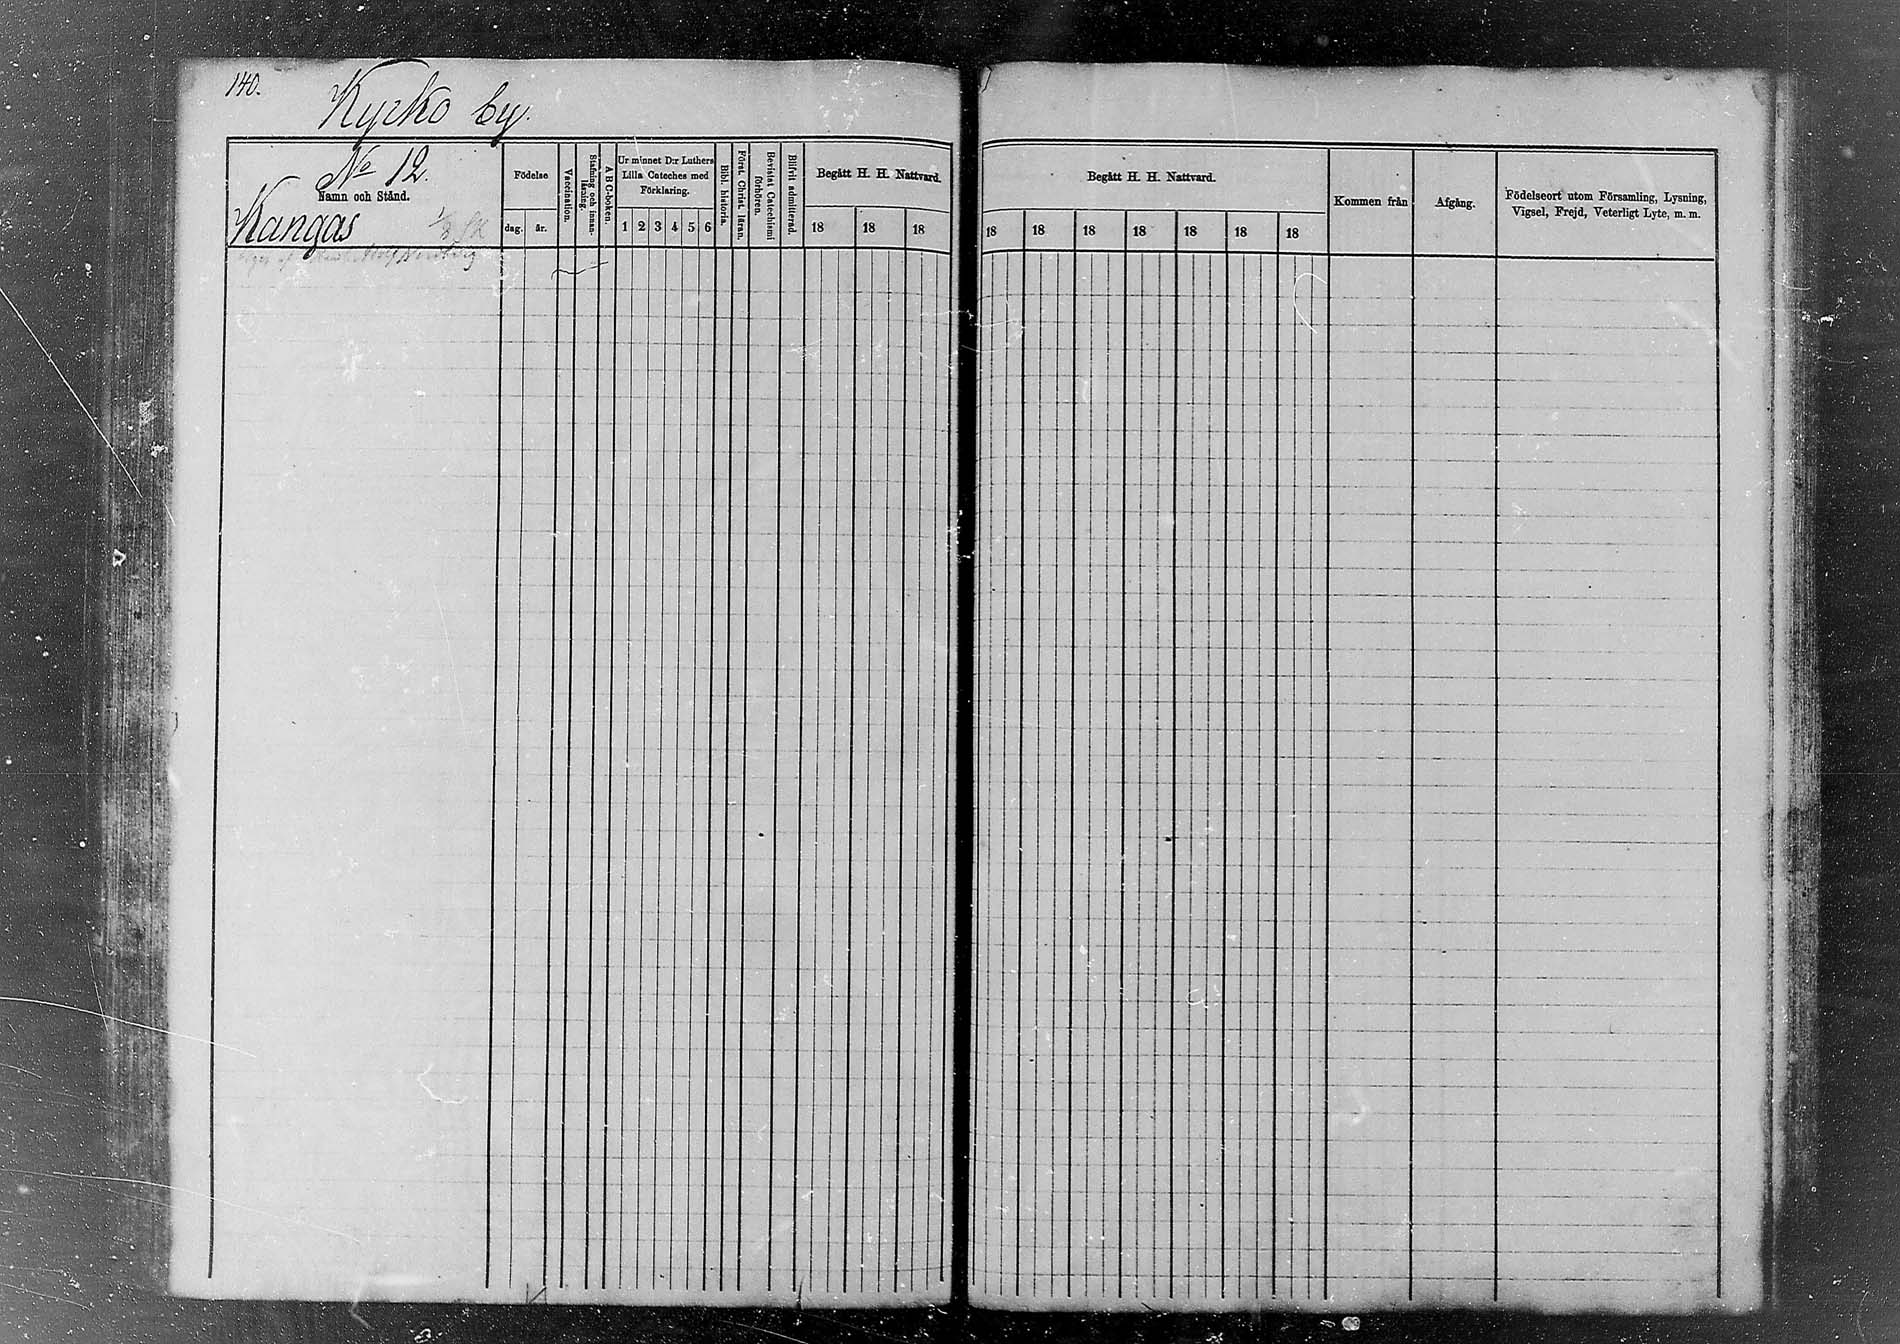 140.
Kyrko by.
No 12.
Namn och Stånd.
Kangas
Födelse
dag. år.
Vaccination.
Stafning och innan-läsning.
ABC-boken.
Ur minnet D:r Luthers
Lilla Cateches med
Förklaring.
1 2 3 4 5 6
Bibl. historia.
Först. Christ. läran.
Bevistat Catechismi förhören.
Blifvit admitterad.
Begått H. H. Nattvard.
18 18 18
Begått H. H. Nattvard.
18 18 18 18 18 18 18
Kommen från
Afgång.
Födelseort utom Församling, Lysning,
Vigsel, Frejd, Veterligt Lyte, m. m.